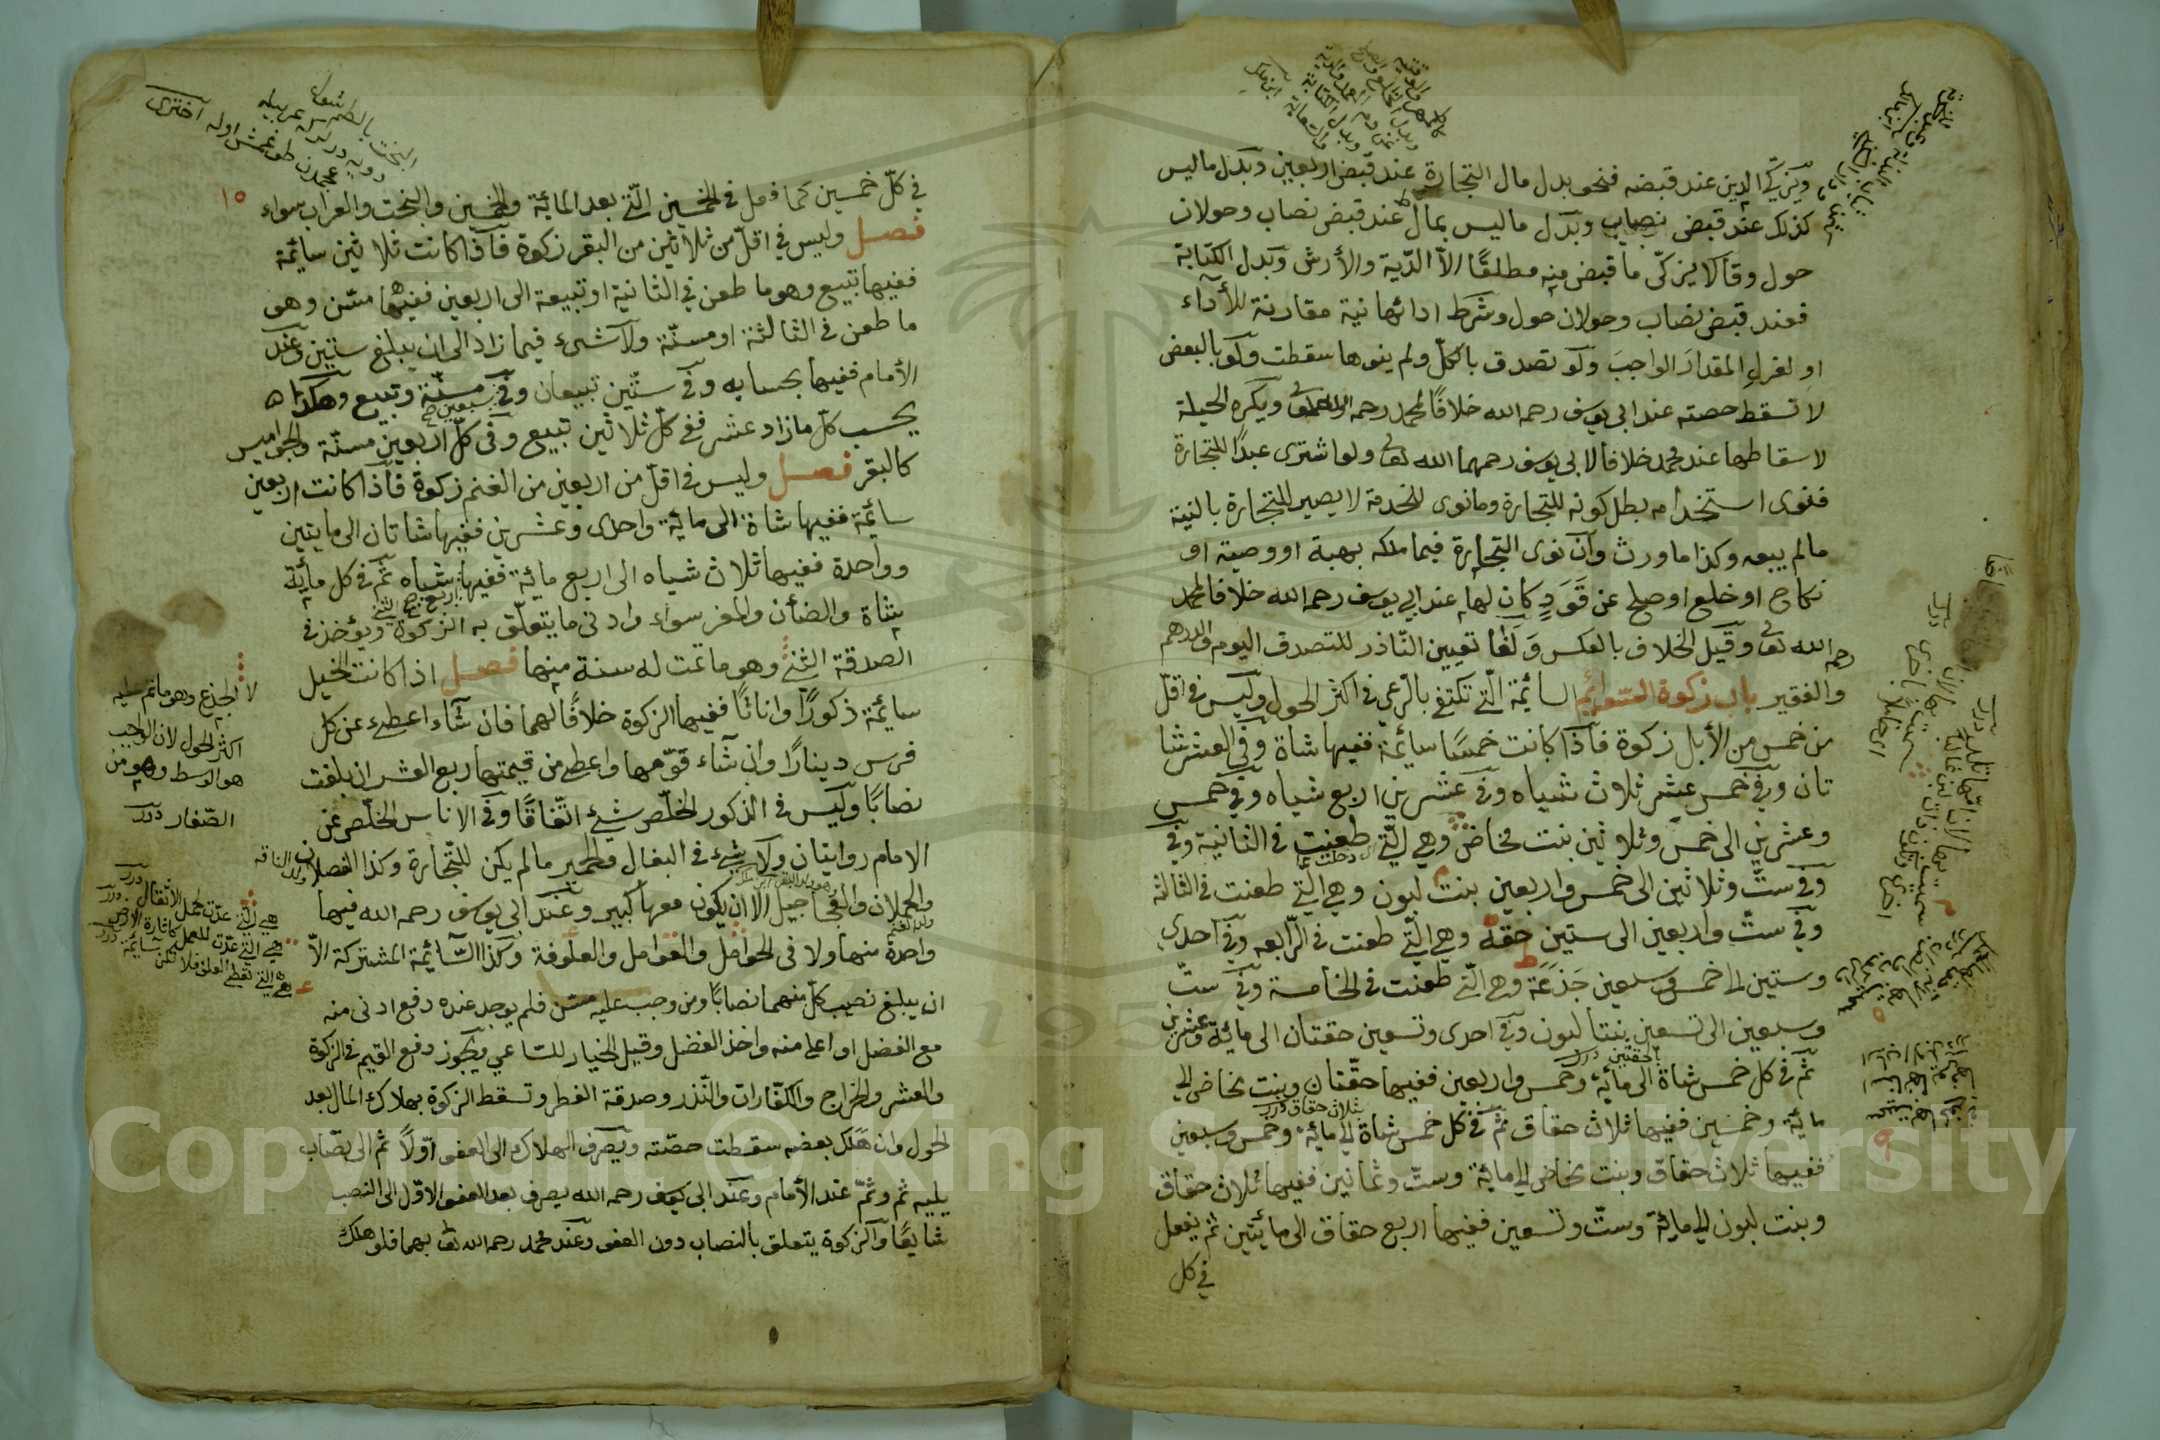 ويزكي الدين عند قبضه فنحو بدل مال التجارة عند قبض اربعين وبدل ماليس
كذلك عند قبض نصاب وبدل ماليس بمال عند قبض نصاب وحولان
حول وقالا يزكى ما قبض منه مطلقًا الاّ الدّية والأرش وبدل الكتابة
فعند قبض نصاب وحولان حول وشرط ادائها نية مقارنة للأداء
او لعزل المقدارَ الواجبَ ولو تصدق بالكلّ ولم ينوها سقطت ولو بالبعض
لا تسقط حصته عند ابى يوسف رحمه الله خلافًا لمحمد رحمه الله تعالى ويكره الحيلة
لاسقاطها عند محمد خلافا لابى يوسف رحمهما الله تعالى ولو اشترى عبدًا للتجارة
فنوى استخدامه بطل كونه للتجارة ومانوى للخدمة لا يصير للتجارة بالنية
مالم يبعه وكذا ما ورث وان نوى التجارة فيما ملكه بهبة او وصية او
نكاح او خلع او صلح عن قَوَدٍ كان لها عند ابي يوسف رحمه الله خلافا لمحمد
رحمه الله تعالى وقيل الخلاف بالعكس وَلَغَا تعيين النّاذر للتصدق اليوم والدرهم
والفقير باب زكوة السّوائم السائمة الّتى تكتفى بالرّعي في اكثر الحول وليس في اقلّ
من خمس من الأبل زكوة فاذا كانت خمسًا سائمة ففيها شاة وفي العشر شا
تان وفي خمس عشر ثلاث شياه وفي عشرين اربع شياه وفي خمس
وعشرين الى خمس وثلاثين بنت مخاض وهي الّتى طعنت في الثانية وفي
وفي ستّ وثلاثين الى خمس واربعين بنت لبون وهي الّتي طعنت في الثالثة
وفي ستّ واربعين الى ستين حقة وهي الّتي طعنت في الرّابعه وفي احدى
وستين الى خمس وسبعين جَذَعَة وهي الّتي طعنت في الخامسة وفي ستّ
وسبعين الى تسعين بنتا لبون وفي احدى وتسعين حقتان الى مائة وعشرين
ثمّ في كل خمس شاة الى مائة وخمس واربعين ففيها حقّتان وبنت مخاض الى
مائة وخمسين ففيها ثلاث حقاق ثمّ في كل خمس شاة الى مائة وخمس وسبعين
ففيها ثلاث حقاق وبنت مخاض الى مائة وستّ وثمانين ففيها ثلاث حقاق
وبنت لبون الى مائة وستّ وتسعين ففيها اربع حقاق الى مائتين ثمّ يفعل
في كل
١٥
في كلّ خمسين كما فعل في الخمسين الّتي بعد المائة والخمسين والبخت والعراب سواء
فصل وليس في اقلّ من ثلاثين من البقر زكوة فاذا كانت ثلاثين سائمة
ففيها تبيع وهو ما طعن في الثانية او تبيعة الى اربعين ففيها مسّن وهو
ما طعن في الثالثة او مسنّة ولا شىء فيما زاد الى ان يبلغ ستين وعند
الأمام ففيها بحسابه وفي ستّين تبيعان وفي سبعين مسنّة وتبيع وهكذا
يحسب كلّ مازاد عشر ففي كلّ ثلاثين تبيع وفي كلّ اربعين مسنّة والجواميس
كالبقر فصل وليس في اقلّ من اربعين من الغنم زكوة فاذا كانت اربعين
سائمة ففيها شاة الى مائة واحدى وعشرين ففيها شاتان الى مايتين
وواحدة ففيها ثلاث شياه الى اربع مائة ففيها اربع شياه ثمّ في كل مائة
شاة والضأن والمعز سواء وادنى ما يتعلّق به الزكوة ويؤخذ في
الصدقة الثنى وهو ماتمت له سنة منها فصل اذا كانت الخيل
سائمة ذكورًا واناثًا ففيها الزكوة خلافًا لهما فان شآء اعطى عن كل
فرس دينارًا وان شآء قوّمها واعطى من قيمتها ربع العشر ان بلغت
نصابًا وليس في الذكور الخلّص شيء اتّفاقًا وفي الاناس الخلّص عن
الامام روايتان ولا شيء في البغال والحمير مالم يكن للتّجارة وكذا الفصلان
والحملان والعجاجيل الا ان يكون معها كبير وعند ابى يوسف رحمه الله فيها
واحدة منها ولا في الحوامل والعوامل والعلوفة وكذا السّائمة المشتركة الاّ
ان يبلغ نصيب كلّ منهما نصابًا ومن وجب عليه مسّن فلم يوجد عنده دفع ادنى منه
مع الفضل او اعلى منه واخذ الفضل وقيل الخيار للسّاعي ويجوز دفع القيم في الزكوة
والعشر والخراج والكفّارات والنّذر وصدقة الفطر وتسقط الزكوة بهلاك المال بعد
الحول وان هَلَك بعضه سقطت حصّته ويصرف الهلاك الى العفو اوّلاً ثمّ الى نصاب
يليه ثم وثمّ عند الأمام وعند ابى يوسف رحمه الله يصرف بعد العفو الاوّل الى النصب
شايعًا والزكوة يتعلق بالنصاب دون العفو وعند محمد رحمه الله تعالى بهما فلو هلك
لا الجذع وهو ماتم عليه
اكثر الحول لان الواجب
هو الوسط وهو من
الصّغار درر
هي الّتي عدّت لحمل الاثقال درر
هي الّتي عدّت للعمل كاثارة الارض درر
هي الّتي تعطى العلف فلا تكن سائمة درر
Copyright © King Saud University
195